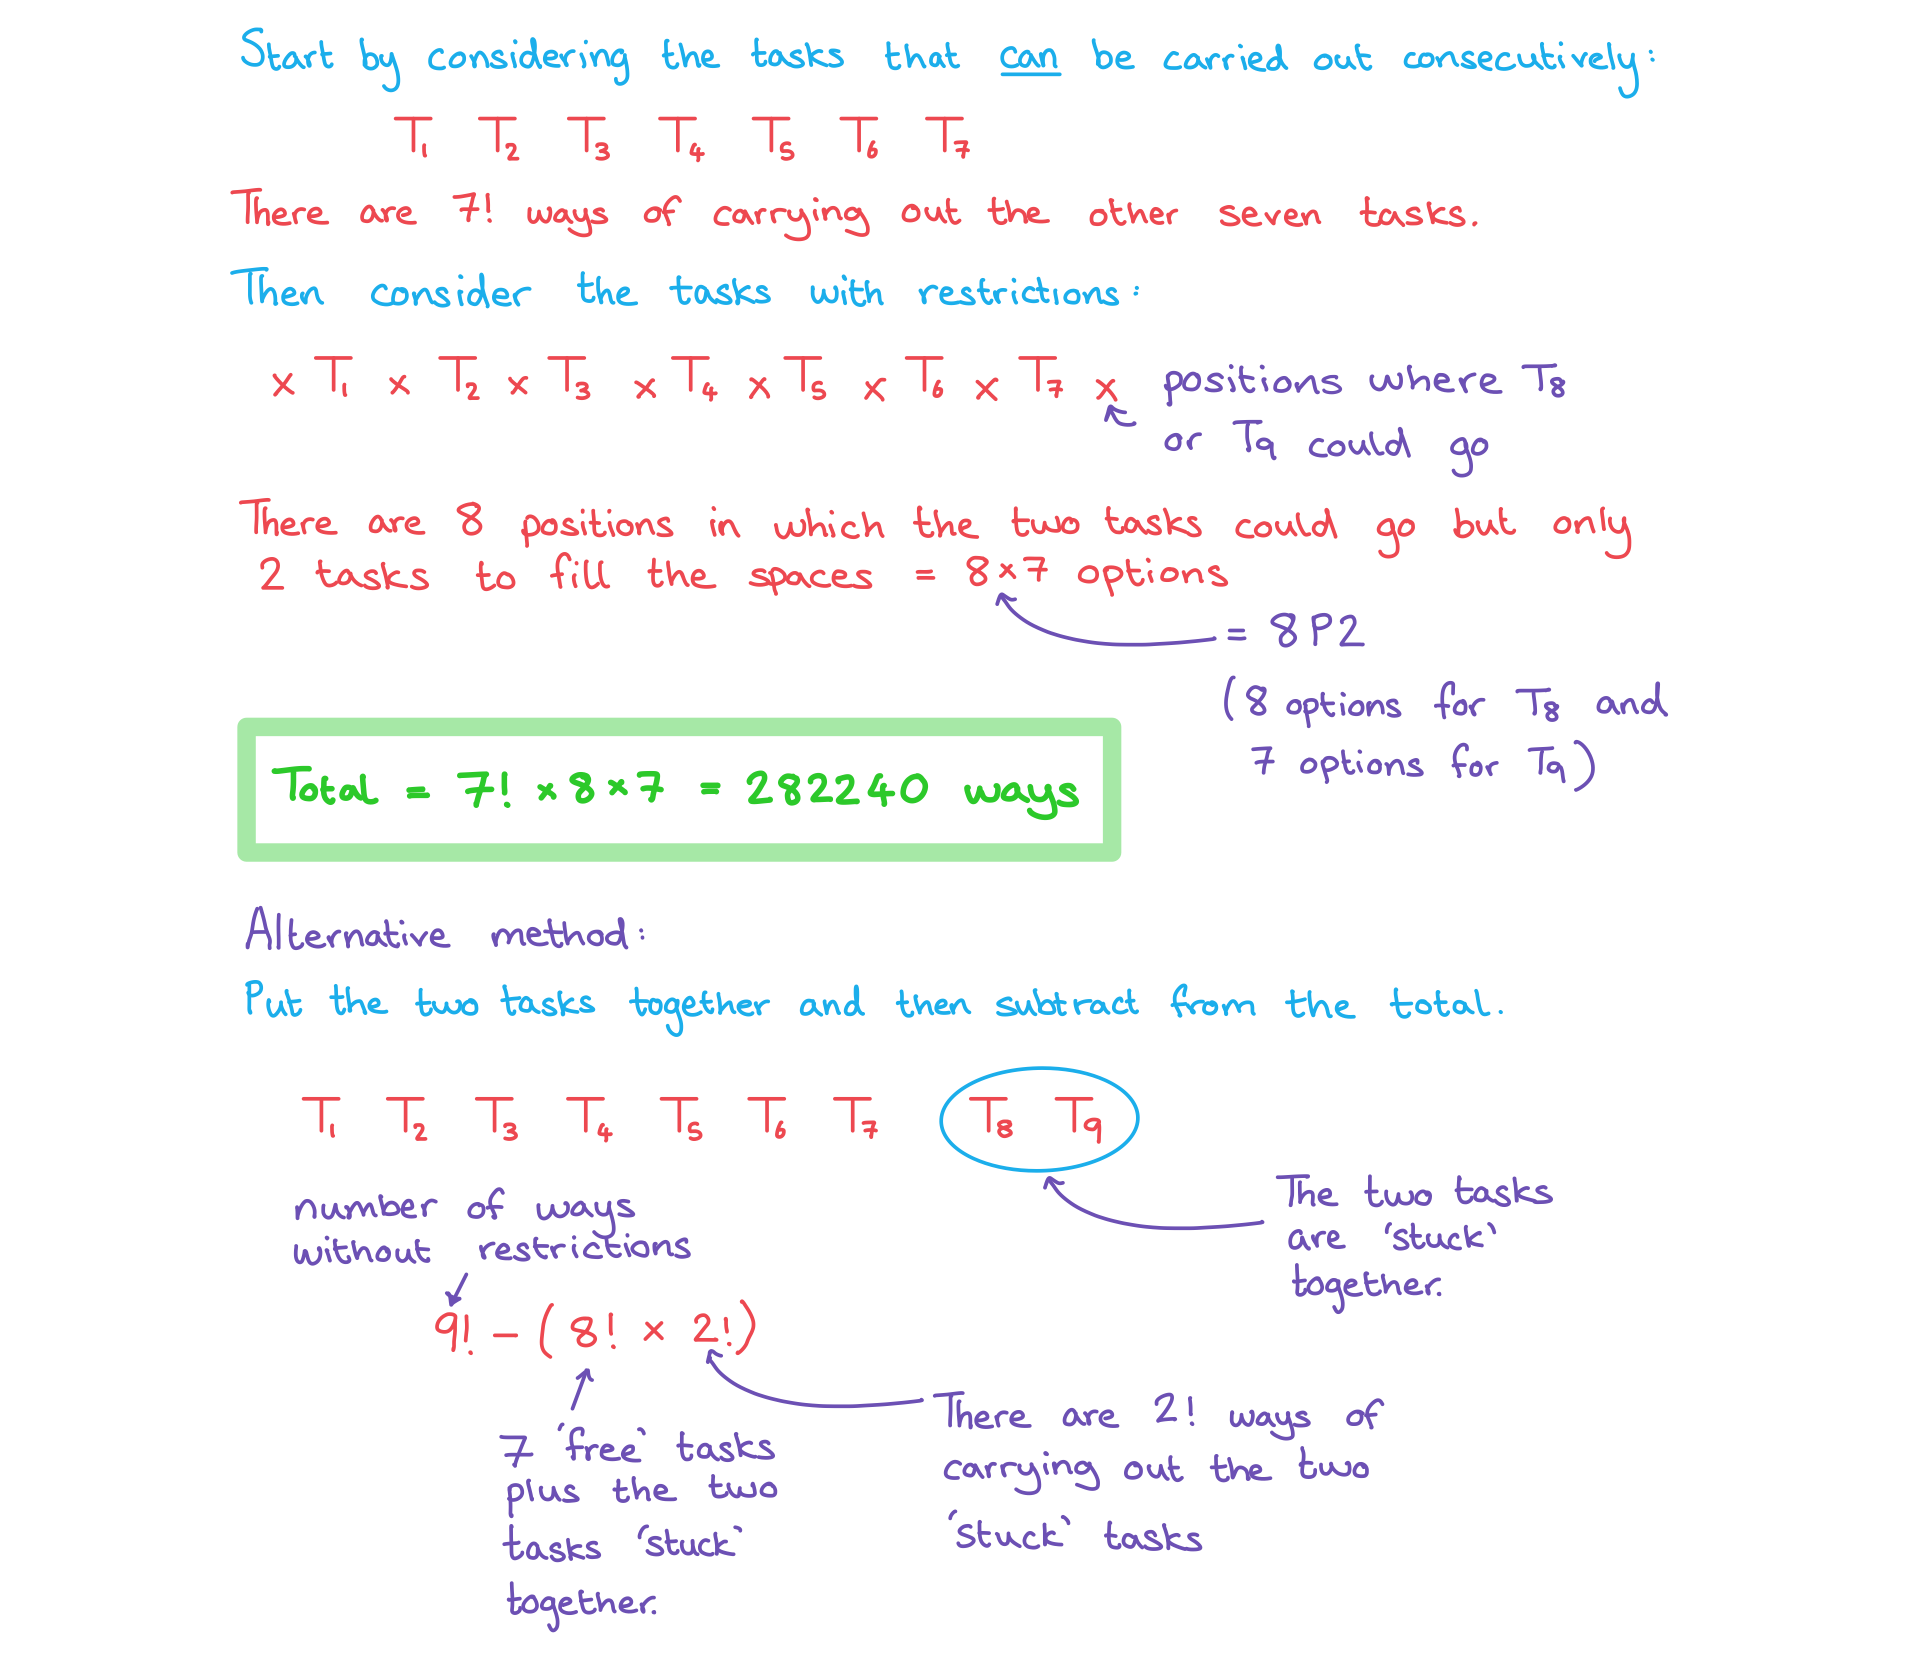 Start by considering the tasks that can be carried out consecutively:
T₁ T₂ T₃ T₄ T₅ T₆ T₇
There are 7! ways of carrying out the other seven tasks.
Then consider the tasks with restrictions:
× T₁ × T₂ × T₃ × T₄ × T₅ × T₆ × T₇ ×
positions where T₈
or T₉ could go
There are 8 positions in which the two tasks could go but only
2 tasks to fill the spaces = 8×7 options
= 8P2
(8 options for T₈ and
7 options for T₉)
Total = 7! × 8 × 7 = 282240 ways
Alternative method:
Put the two tasks together and then subtract from the total.
T₁ T₂ T₃ T₄ T₅ T₆ T₇ T₈ T₉
The two tasks
are 'stuck'
together.
number of ways
without restrictions
9! – (8! × 2!)
7 'free' tasks
plus the two
tasks 'stuck'
together.
There are 2! ways of
carrying out the two
'stuck' tasks